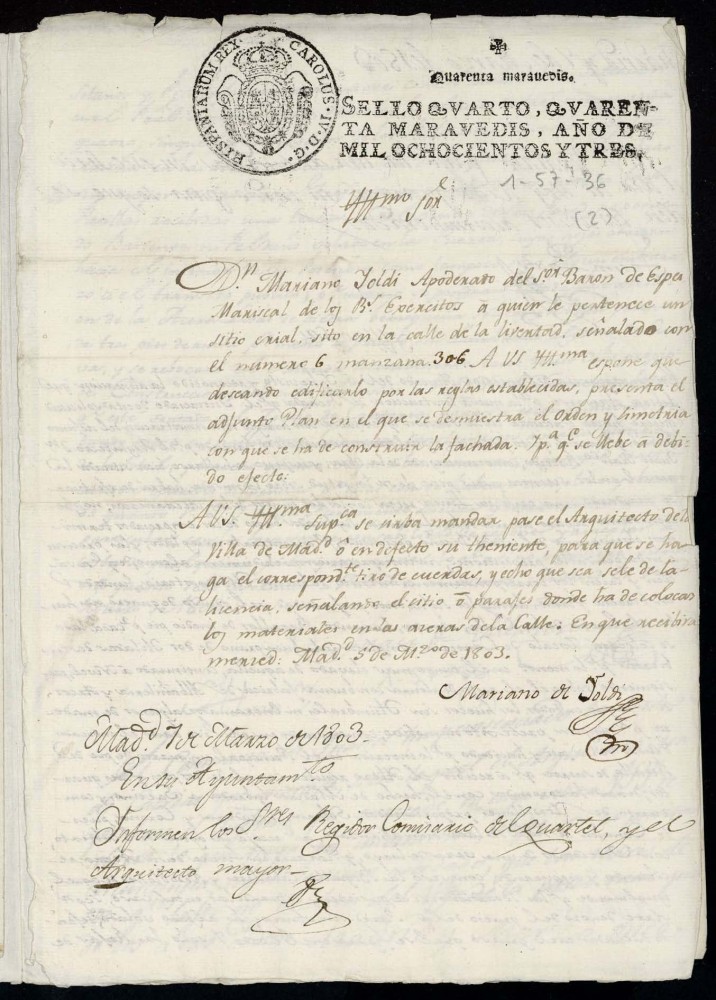 HISPANIARUM REX. CAROLUS·IV·D·G·
Quarenta maravedis.
SELLO QVARTO, QVAREN-
TA MARAVEDIS, AÑO DE
MIL OCHOCIENTOS Y TRES.
1-57-36
(2)
Yllmo Sor
Dn Mariano Yoldi Apoderado del Sor Baron de Espe
Mariscal de los Rs Exercitos â quien le pertenece un
sitio erial, sito en la calle de la livertad, señalado con
el numero 6 manzana 306 A VS Yllma espone que
deseando edificarlo por las reglas establecidas, presenta el
adjunto Plan en el que se demuestra el Orden y Simetria
con que se ha de construir la fachada. Y pa qe se llebe â debi-
do efecto:
A VS. Yllma Supca se sirba mandar, pase el Arquitecto de la
Villa de Madd ô en defecto su theniente, para que se ha-
ga el correspondte tiro de cuerdas, y echo que sea se le de la
licencia, señalando el sitio ô parajes donde ha de colocar
los materiales en las aceras de la Calle: En que recibira
merced: Madd 5 de Mzo de 1803.
Mariano de Yoldi
Madd 7 de Marzo de 1803.
En su Ayuntamto
Informen los Sres Regidor Comisario del Quartel, y el
Arquitecto mayor